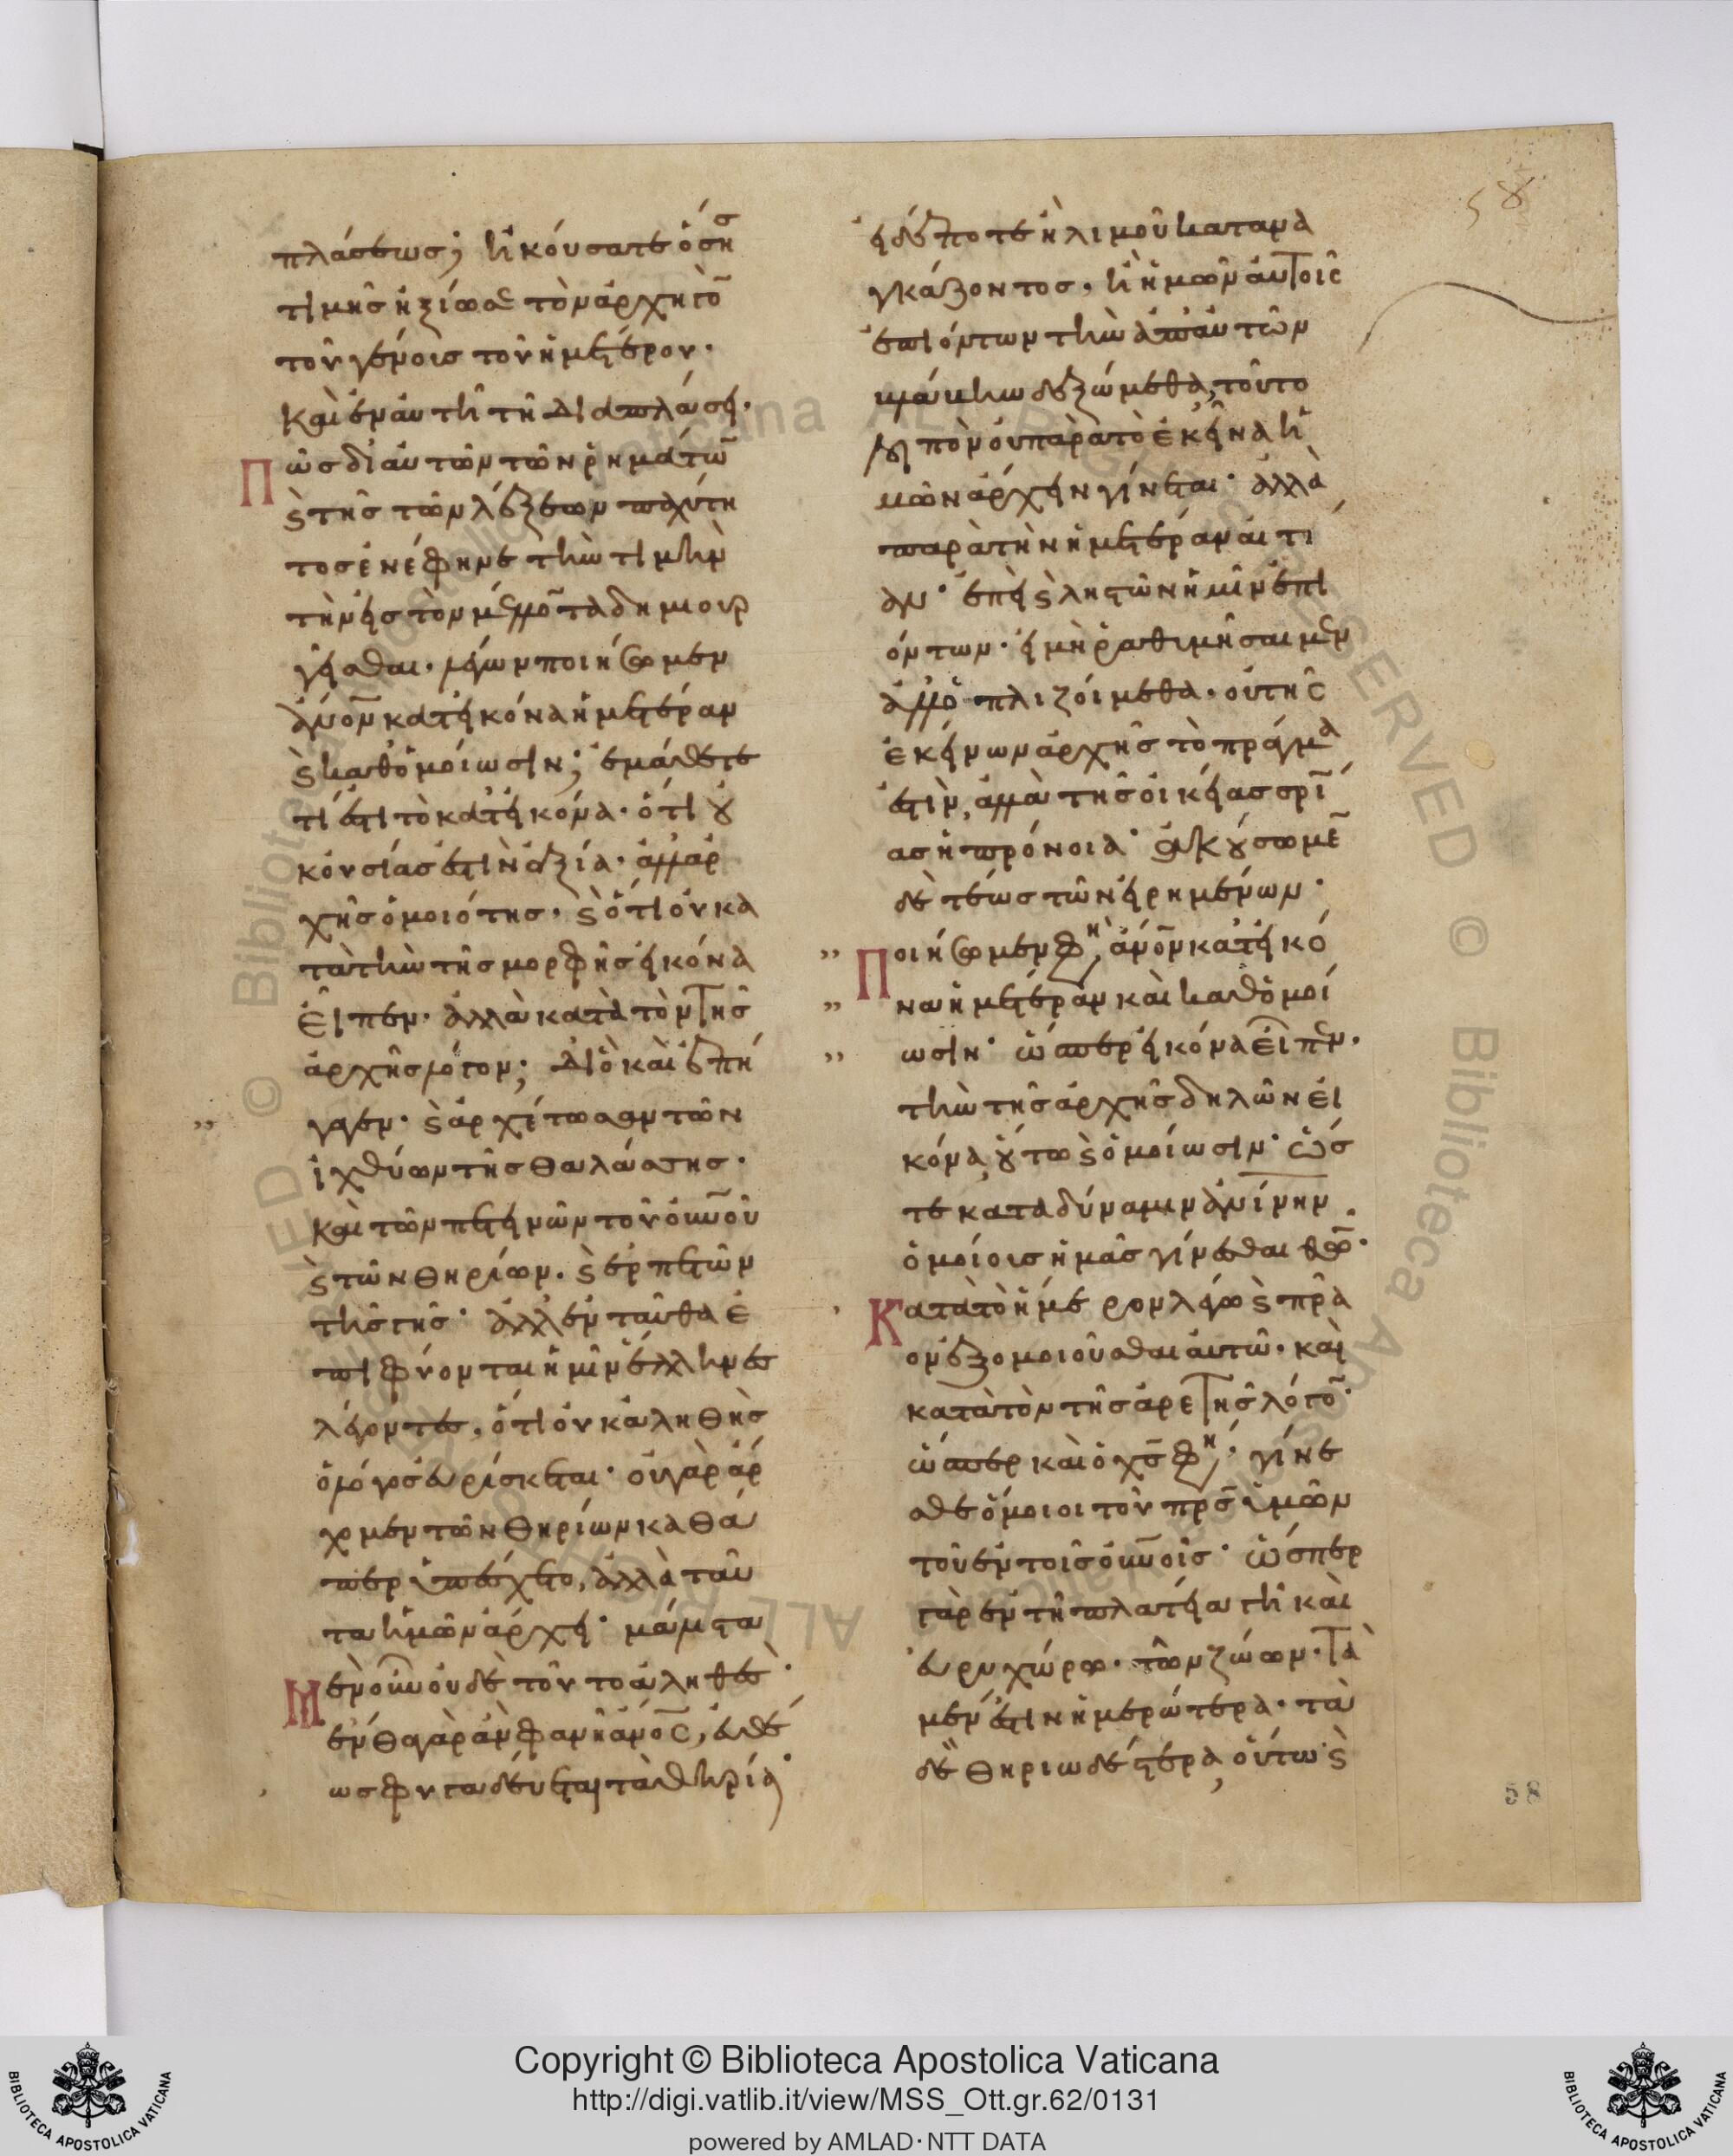 πλάσεως; ἠκούσατε ὅσης
τιμῆς ἠξίωσε τὸν ἀρχηγὸ̅
τοῦ γένοις τοῦ ἡμετέρου·
καὶ ἐν αὐτῆ τῆ διαπλάσει·
Πῶς δι' αὐτῶν τῶν ῥημάτω̅
ϛ̀ τῆς τῶν λέξεων παχύτη
τος ἐνέφηνε τὴν τιμὴν
τὴν εἰς τὸν μέλλο̅τα δημιουρ
γεῖσθαι· λέγων ποιήσωμεν
ἄν̅ο̅ν κατ' εἰκόνα ἡμετέραν
ϛ̀ καθ' ὁμοίωσιν; ἐμάθετε
τί ἐστι τὸ κατ' εἰκόνα· ὅτι οὐ
κ οὐσίας ἐστὶν ἀξία· ἀλλ' ἀρ
χῆς ὁμοιότης· ϛ̀ ὅτι οὐ κα
τὰ τὴν τῆς μορφῆς εἰκόνα
εἶπεν· ἀλλὰ κατὰ τὸν τῆς
ἀρχῆς λόγον; Διὸ καὶ ἐπή
γαγεν· ϛ̀ ἀρχέτωσαν τῶν
ἰχθύων τῆς θαλάσσης·
καὶ τῶν πετεινῶν τοῦ οὐ̅ν̅οῦ
ϛ̀ τῶν θηρίων· ϛ̀ ἑρπετῶν
τῆς γῆς· ἀλλ' ἐνταῦθα ἐ
πιφύονται ἡμῖν ἕλληνες
λέγοντες, ὅτι οὐκ ἀληθὴς
ὁ λόγος εὑρίσκεται· οὐ γὰρ ἄρ
χομεν τῶν θηρίων καθά
περ ὑπέσχετο, ἀλλὰ ταῦ
τα ἡμῶν ἄρχει· μάλιστα
Μὲν οὖν οὐδὲ τοῦτο ἀληθὲς·
ἔνθα γὰρ ἂν φανῆ ἄν̅ο̅ς, εὐθέ
ως φυγαδεύεται τὰ θηρία·
58
εἰ δέ ποτε ἢ λιμοῦ κατανα
γκάζοντος· ἢ ἡμῶν αὐτοῖς
ἐπιόντων τὴν ἀπ' αὐτῶν
δεξώμεθα, τοῦτο
λοιπὸν οὐ παρὰ τὸ ἐκεῖνα ἡ
μῶν ἄρχειν γίνεται· ἀλλὰ
παρὰ τὴν ἡμετέραν αἰτί
αν· ἐπεὶ ϛ̀ ληστῶν ἡμῖν ἐπι
όντων· εἰ μὴ ῥαθυμήσαιμεν
ἀλλ' ὁπλιζοίμεθα· οὐ τῆς
ἐκείνων ἀρχῆς τὸ πρᾶγμα
ἐστὶν, ἀλλὰ τῆς οἰκείας σρ̅ί
ας ἡ πρόνοια· ἀκούσωμε̅
δὲ τέως τῶν εἰρημένων·
Ποιήσωμεν φη, ἄν̅ο̅ν κατ' εἰκό
να ἡμετέραν καὶ καθ' ὁμοί
ωσιν· ὥσπερ εἰκόνα εἶπεν·
τὴν τῆς ἀρχῆς δηλῶν εἰ
κόνα, οὕτω ϛ̀ ὁμοίωσιν· ὥσ
τε κατὰ δύναμιν ἀν̅ίνην
ὁμοίοις ἡμᾶς γίνεσθαι θ̅ω̅·
Κατὰ τὸ ἥμερον λέγω ϛ̀ πρᾶ
ον ἐξομοιοῦσθαι αὐτῶ· καὶ
κατὰ τὸν τῆς ἀρετῆς λόγο̅·
ὥσπερ καὶ ὁ χ̅ς̅ φη· γίνε
σθε ὅμοιοι τοῦ π̅ρ̅ς̅ ὑμῶν
τοῦ ἐν τοῖς οὐ̅ν̅οῖς· ὥσπερ
γὰρ ἐν τῆ πλατεία γῆ καὶ
εὐρυχώρω· τῶν ζώων· τὰ
μέν ἐστιν ἡμερώτερα· τὰ
δὲ θηριωδέστερα, οὕτω ϛ̀
58
Copyright © Biblioteca Apostolica Vaticana
http://digi.vatlib.it/view/MSS_Ott.gr.62/0131
powered by AMLAD·NTT DATA
BIBLIOTECA APOSTOLICA VATICANA
BIBLIOTECA APOSTOLICA VATICANA